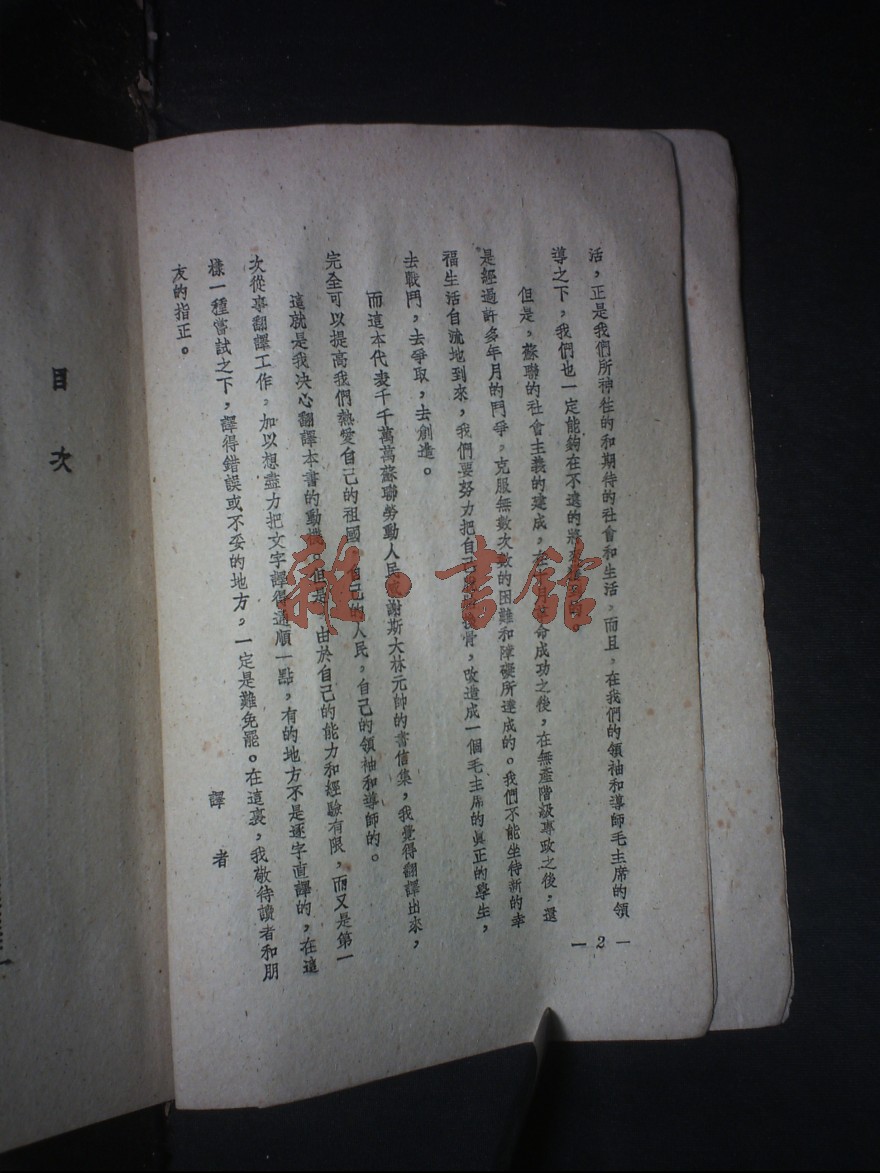 活，正是我們所神往的和期待的社會和生活，而且，在我們的領袖和導師毛主席的領
導之下，我們也一定能夠在不遠的將
但是，蘇聯的社會主義的建成，在命成功之後，在無產階級專政之後，還
是經過許多年月的鬥爭，克服無數次數的困難和障礙所達成的。我們不能坐待新的幸
福生活自流地到來，我們要努力把自己骨，改造成一個毛主席的眞正的學生，
去戰鬥，去爭取，去創造。
而這本代表千千萬萬蘇聯勞動人民感謝斯大林元帥的書信集，我覺得翻譯出來，
完全可以提高我們熱愛自己的祖國，自己的人民，自己的領袖和導師的。
這就是我決心翻譯本書的動機。但是，由於自己的能力和經驗有限，而又是第一
次從事翻譯工作，加以想盡力把文字譯得通順一點，有的地方不是逐字直譯的，在這
樣一種嘗試之下，譯得錯誤或不妥的地方，一定是難免罷。在這裏，我敬待讀者和朋
友的指正。
譯者
— 2 —
目次
雜·書館